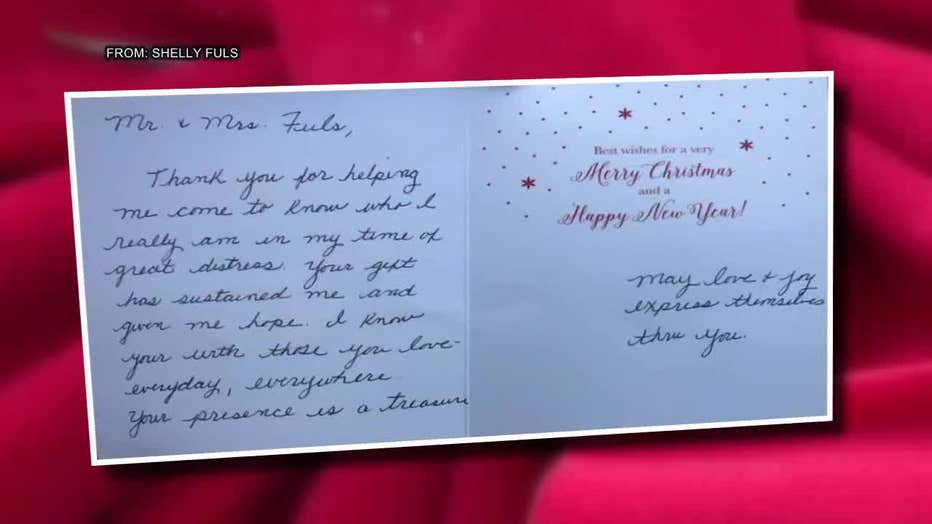 FROM: SHELLY FULS
Mr. & Mrs. Fuls,
Thank you for helping
me come to know who I
really am in my time of
great distress. Your gift
has sustained me and
given me hope. I know
your with those you love-
everyday, everywhere.
Your presence is a treasure
Best wishes for a very
Merry Christmas
and a
Happy New Year!
may love & joy
express themselves
thru you.